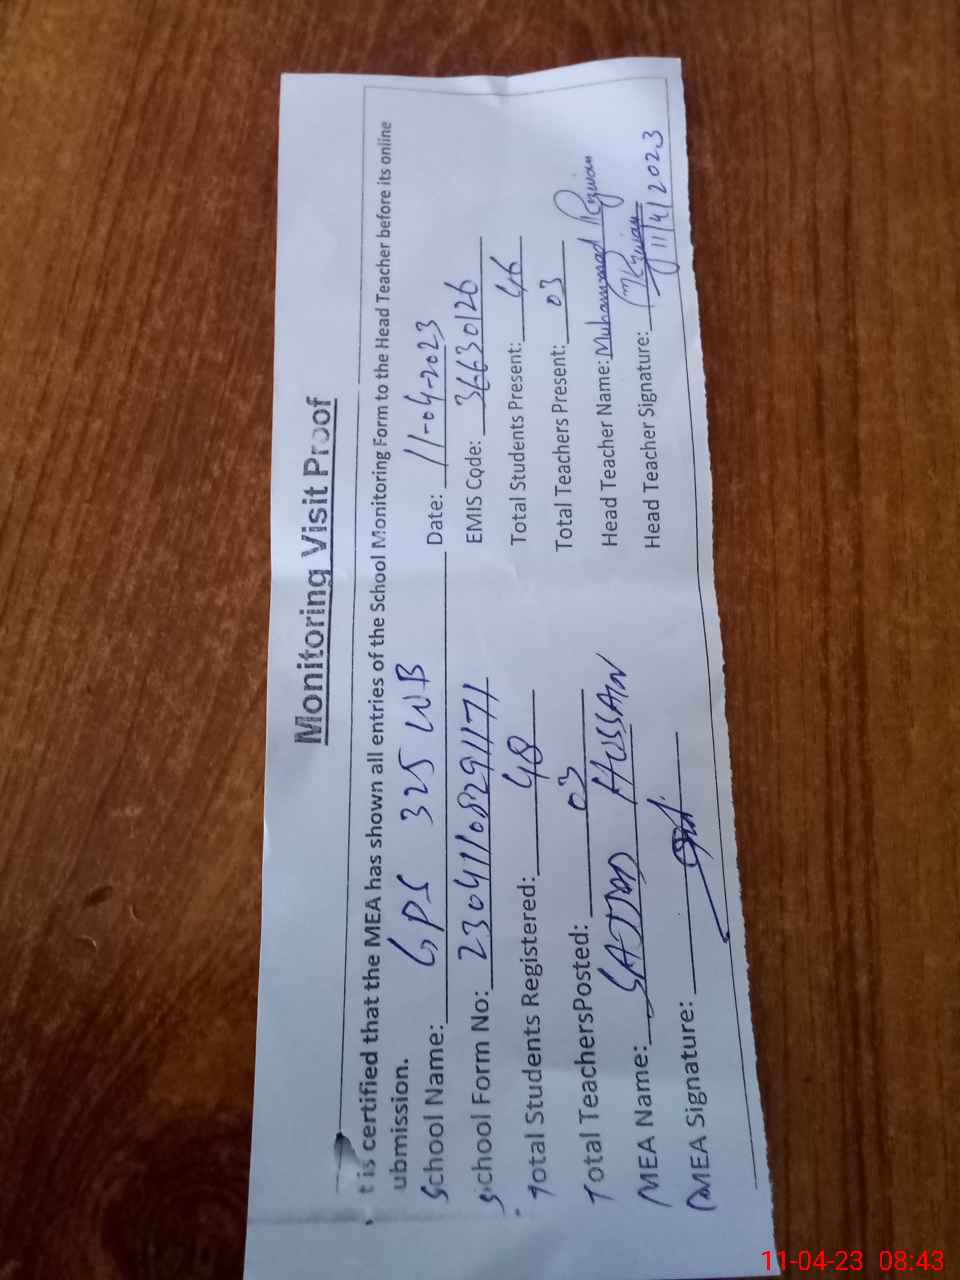 Monitoring Visit Proof
t is certified that the MEA has shown all entries of the School Monitoring Form to the Head Teacher before its online
ubmission.
School Name: GPS 325 WB Date: 11-04-2023
School Form No: 23041108291171 EMIS Code: 36630126
Total Students Registered: 48 Total Students Present: 46
Total TeachersPosted: 03 Total Teachers Present: 03
MEA Name: SAJJAD HUSSAIN Head Teacher Name: Muhammad Rizwan
MEA Signature: Head Teacher Signature: Rizwan
11/4/2023
11-04-23 08:43